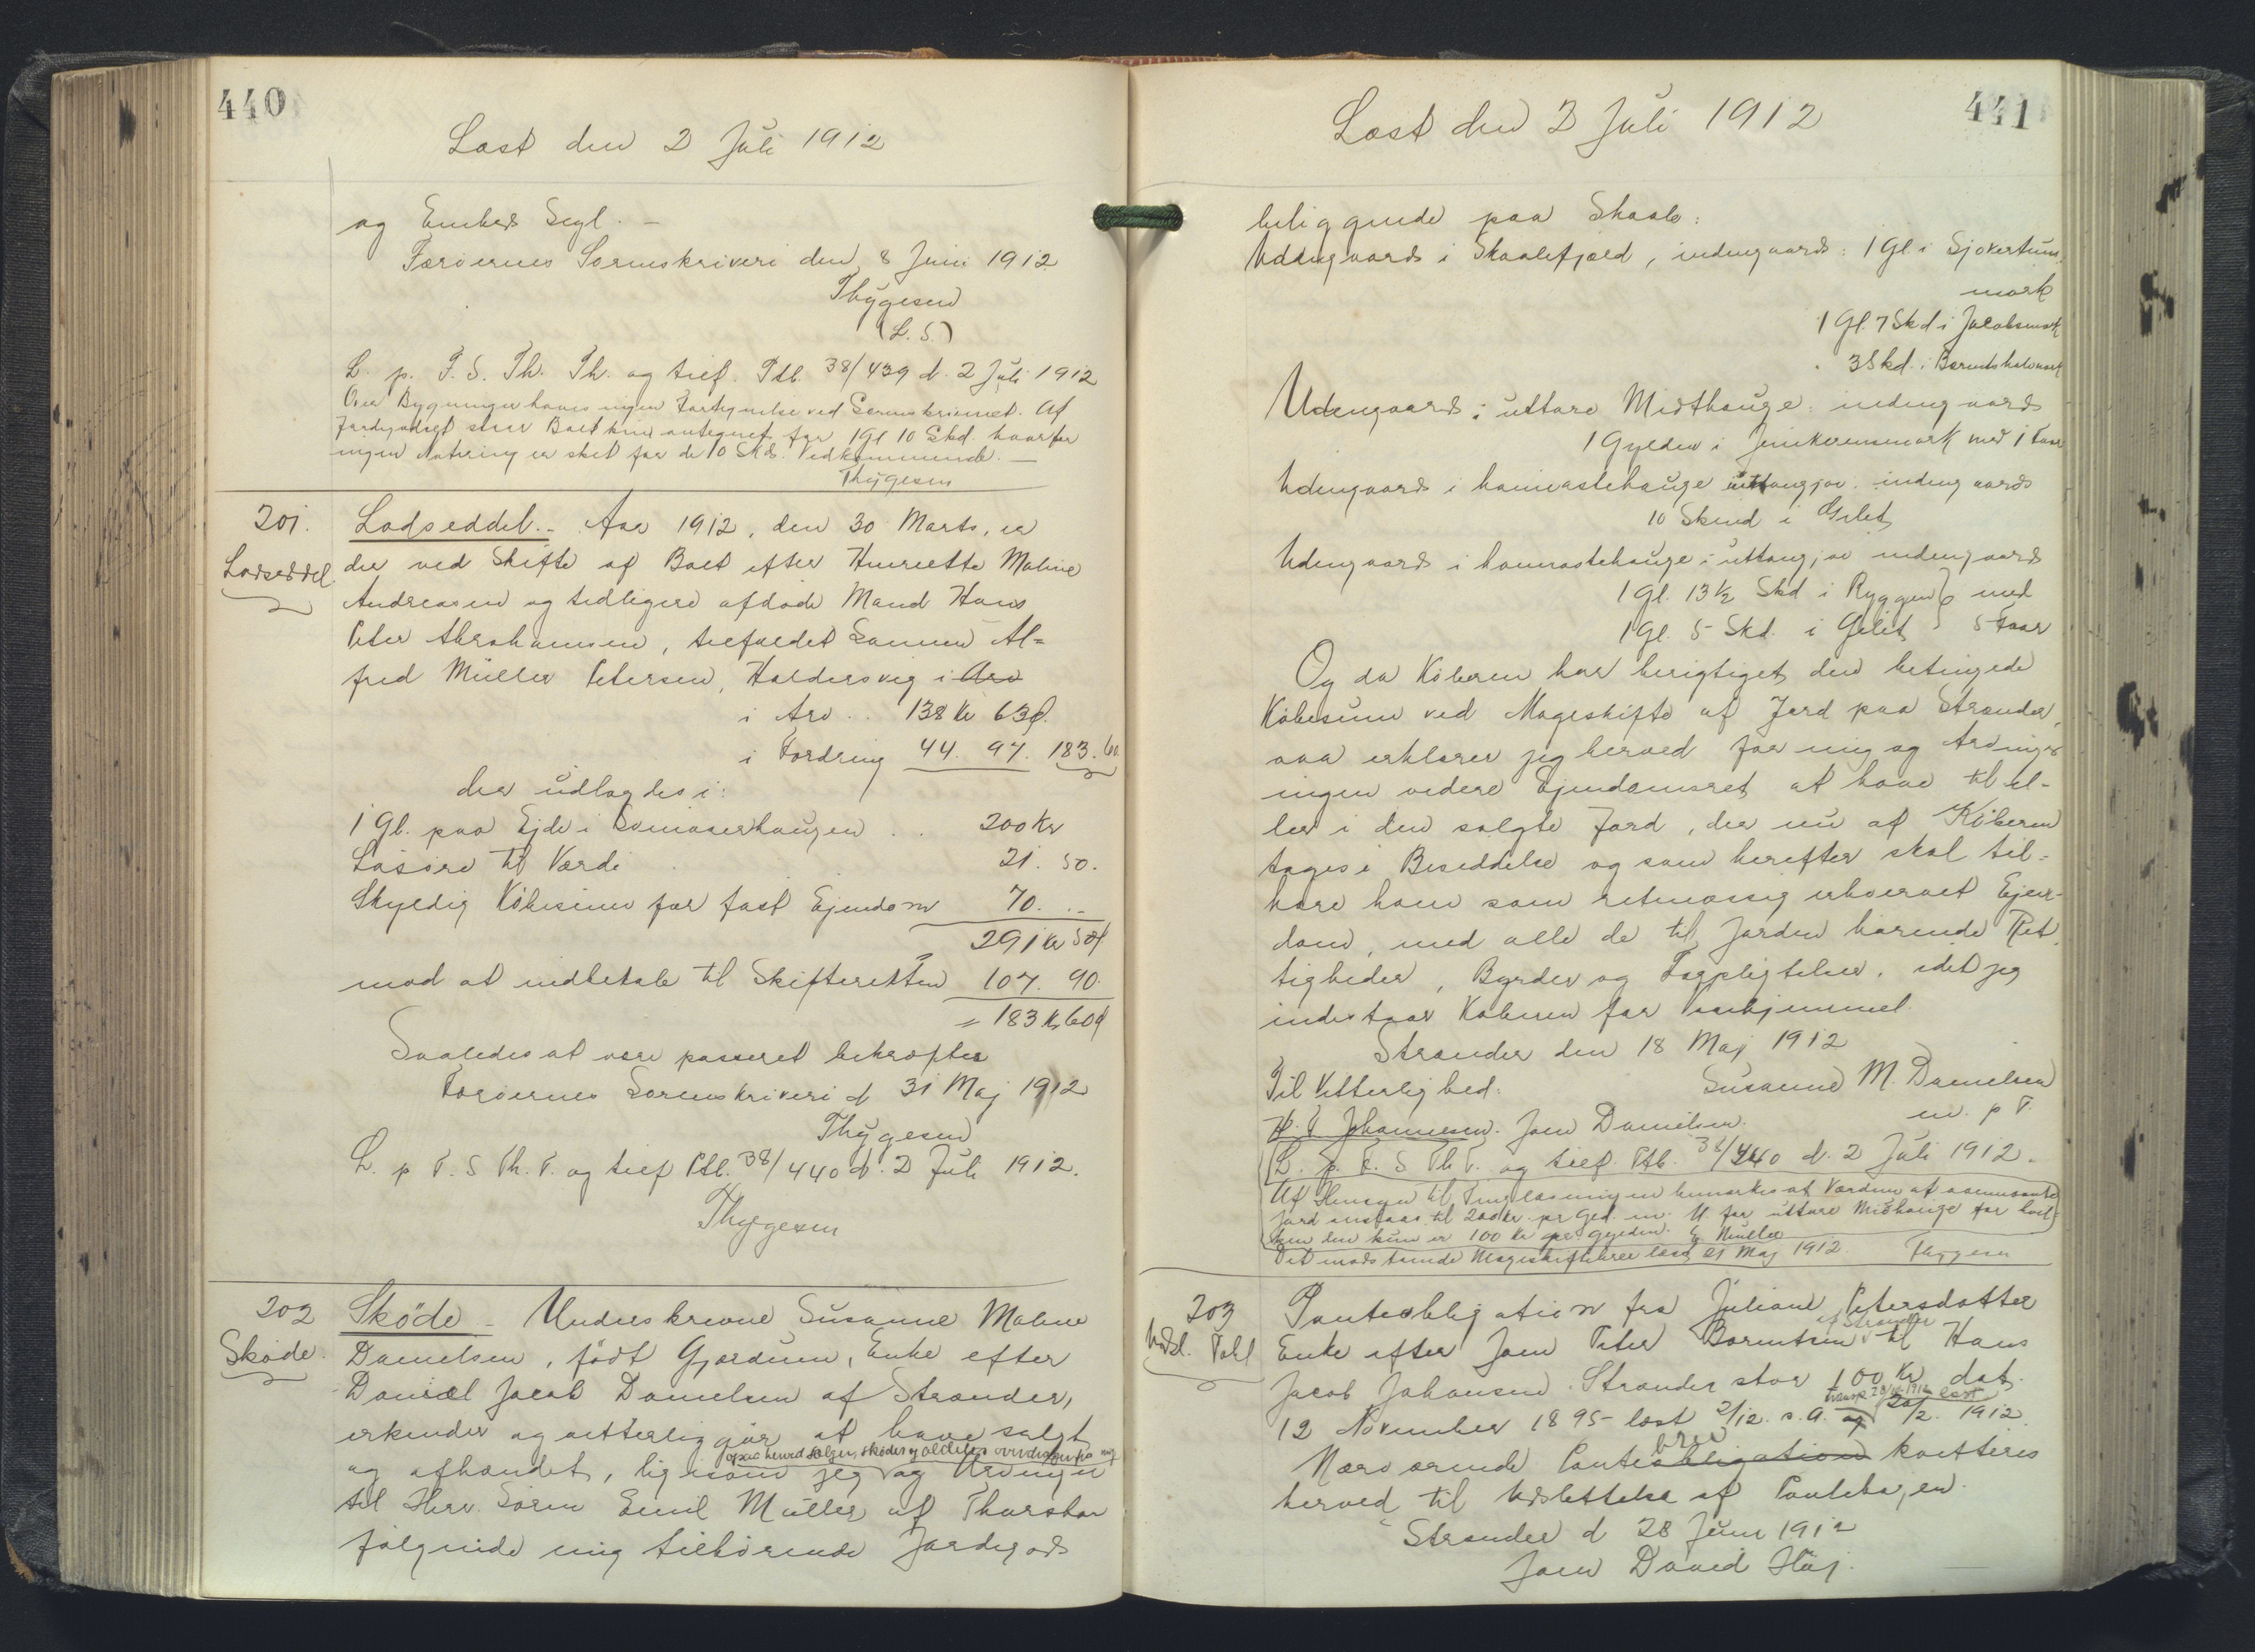 440
Læst den 2 Juli 1912
og Embeds Segl. -
Færøernes Sorenskriveri den 8 Juni 1912
Thygesen
(L. S.)
L. p. F. S. Th. Th. og tilf. Ptb. 38/439 d. 2 Juli 1912
Over Bygninger haves ingen Fortegnelse ved Sorenskriveriet. Af
Jordegodset staar Boet kun antegnet for 1 Gl 10 Skd. hvorfor
ingen Notering er sket for de 10 Skds. Vedkommende. -
Thygesen
201.
Lodseddel.
Lodseddel. - Aar 1912, den 30 Marts, er
der ved Skifte af Boet efter Henriette Maline
Andreasen og tidligere afdøde Mand Hans
Peter Abrahamsen, tilfaldet Sønnen Al=
fred Müller Petersen, Haldersvig i Arv
i Arv . . 138 Kr 63 Ø.
i Fordring 44. 97. 183. 60.
der udlagdes i:
1 Gl. paa Ejde i haugen . . 200 Kr
Løsøre til Værdi 21. 50.
Skyldig Købesum for fast Ejendom 70. . -
291 Kr 50 Ø
mod at indbetale til Skifteretten 107. 90.
= 183 Kr 60 Ø
Saaledes at være passeret bekræftes
Færøernes Sorenskriveri d 31 Maj 1912
Thygesen
L. p F. S Th. T. og tilf Ptb. 38/440 d. 2 Juli 1912.
Thygesen
202
Skøde.
Sköde - Underskrevne Susanne Maline
Danielsen, født Gjærdum, Enke efter
Daniæl Jacob Danielsen af Strænder,
erkender og vitterliggjør at have solgt
og afhændet, ligesom jeg og Arvinger
ogsaa herved sælger, skøder og aldeles overdrager fra mig
til Herr Sören Emil Müller af Thorshavn
følgende mig tilhørende Jordegods
441
Læst den 2 Juli 1912
beliggende paa Skaale:
Udengaards i Skaalefjæld, indengaards: 1 Gl. i Sjovertum
mark
1 Gl. 7 Skd i Jacobsmark
3 Skd. i
Udengaards i uttare Midthauge: indengaards
1 Gylden i mark med 1 Faar
Udengaards i hauge uttangjov. indengaards
10 Skind i Gilet
Udengaards i hauge i uttangjov indengaards
1 Gl. 13½ Skd i Ryggen } med
1 Gl. 5 Skd. i Gilet } 5 Faar
Og da Køberen har berigtiget den betingede
Købesum ved Mageskifte af Jord paa Strænder,
saa erklærer jeg herved for mig og Arvinger
ingen videre Ejendomsret at have til el=
ler i den solgte Jord, der nu af Køberen
tages i Besiddelse og som herefter skal til=
høre ham som retmæssig erhvervet Ejen=
dom, med alle de til Jorden hørende Ret
tigheder, Byrder og Forpligtelser, idet jeg
indestaar Køberen for Vanhjemmel.
Strænder den 18 Maj 1912
Til Vitterlighed: Susanne M. Danielsen
H. J Johannesen. Joen Danielsen. m. p F.
L. p. F. S Th T. og tilf. Ptb. 38/440 d. 2 Juli 1912.
Af Hensyn til Tinglæsningen bemærkes at Værdien af ovennævnte
Jord ansættes til 200 Kr. pr Gld. m. U. for uttare Midhauge for hvil=
ken den kun er 100 Kr pr Gylden. E Müller
Det modstaaende Mageskiftebrev læst 21 Maj 1912. Thygesen
203
Udsl. Tabl
Panteobligation fra Juliane Petersdatter
Enke efter Joen Peter Barentsen af Strænder til Hans
Jacob Johansen. Strænder stor 100 Kr dat.
12 November 1895 læst 2/12. s. A. og transp. 1912 læst 20/2. 1912
Nærværende Panteobligation brev kvitteres
herved til Udslettelse af Pantebogen.
Strænder d 28 Juni 1912
Joen David Høj.